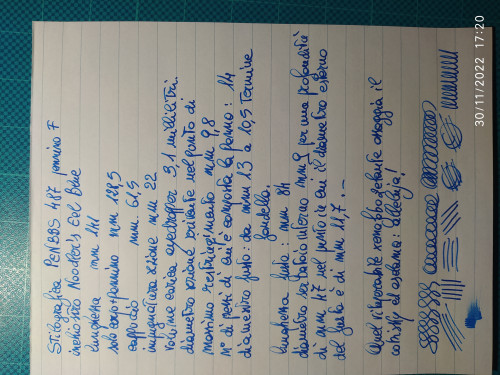 Stilografica PENBBS 487 pennino F
inchiostro Noodler's Eel Blue
lunghezza mm 141
solo corpo+pennino mm 128,5
cappuccio mm. 61,5
impugnatura sezione mm 22
volume carica eyedropper 3,1 millilitri.
diametro sezione svitante nel punto di
massimo restringimento mm 9,8
N° di pezzi di cui è composta la penna: 14
diametro fusto: da mm 13 a 10,5 termine
lunghezza fusto: mm 84
diametro serbatoio interno mm 9 per una profondità
di mm 47 nel punto in cui il diametro esterno
del fusto è di mm 11,7 . -
Quel vituperabile xenofobo zelante assaggia il
whisky ed esclama: alleluja!
30/11/2022 17:20